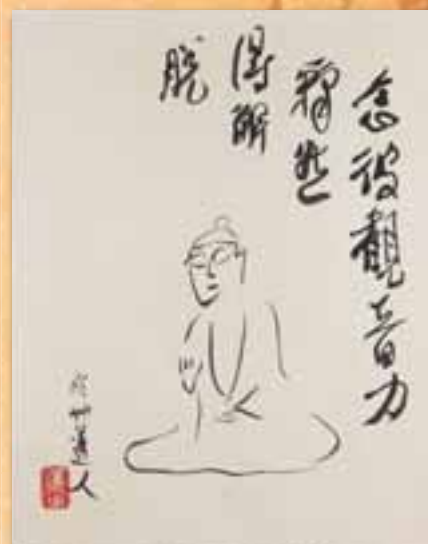 念彼觀音力
釋然
得解
脫
道人